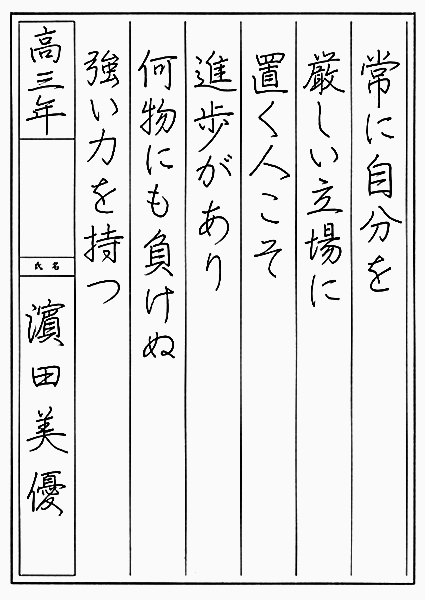 常に自分を
厳しい立場に
置く人こそ
進歩があり
何物にも負けぬ
強い力を持つ
高三年
氏名
濱田美優